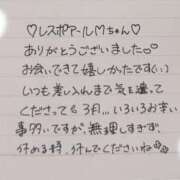 ♡レスポアールMちゃん♡
ありがとうございました
お会いできて嬉しかったです(:)
いつも差し入れまで気をつかって
くださっても3月...いろいろお忙しい
事多いですが、無理しすぎず、
休める時、休んでくださいね